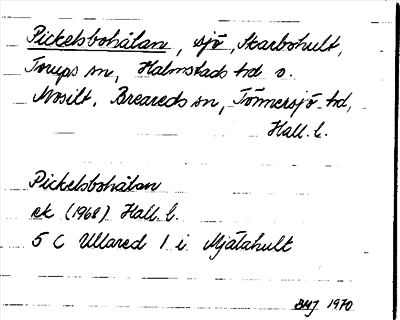 Pickelsbohålan, sjö, Skarbohult,
Torups sn, Halmstads hd o.
Mosilt, Breareds sn, Tönnersjö hd,
Hall. l.
Pickelsbohålan
ek (1968) Hall. l.
5 C Ullared 1 i Mjälahult
BMJ 1970